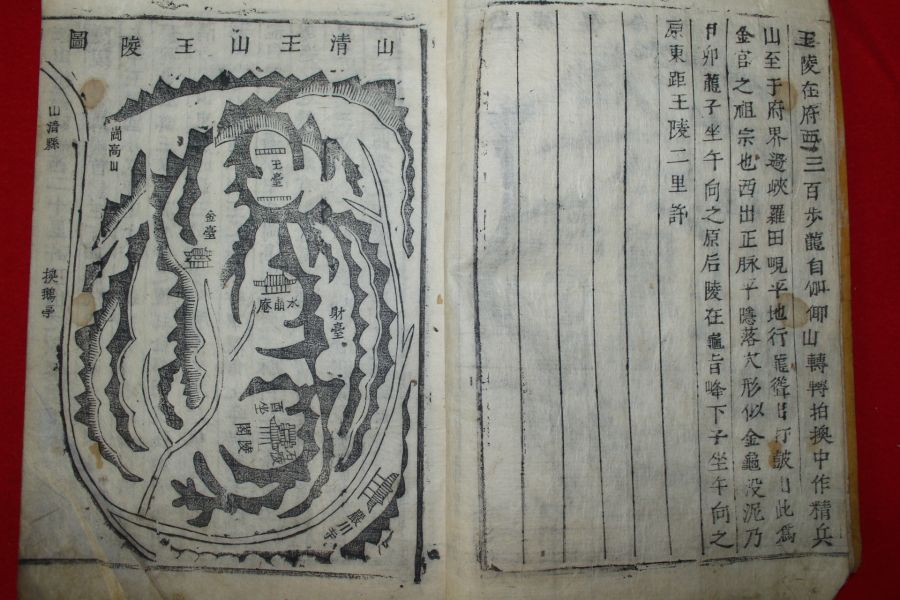 王陵在府西三百步龍自伽倻山轉轉拍換中作精兵
山至于府界過峽羅田峴平地行龍
此爲
金官之祖宗也西出正脉平隱落穴形似金龜沒泥乃
卯龍子坐午向之原后陵在龜旨峰下子坐午向之
原東距王陵二里許
山清王山王陵圖
山清縣
換鵝亭
王臺
金臺
水晶庵
財臺
陵閣
嚴川寺